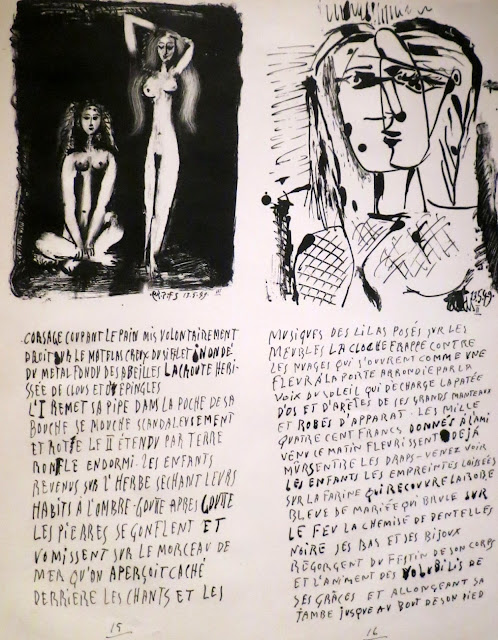 CORSAGE COUPANT LE PAIN MIS VOLONTAIREMENT
DROIT SUR LE MATELAS CREUX DU SIFFLET INONDÉ
DU METAL FONDU DES ABEILLES LA CROUTE HERI-
SSÉE DE CLOUS ET D'EPINGLES
L'I REMET SA PIPE DANS LA POCHE DE SA
BOUCHE SE MOUCHE SCANDALEUSEMENT
ET ROTE LE II ÉTENDU PAR TERRE
RONFLE ENDORMI. LES ENFANTS
REVENUS SUR L'HERBE SECHANT LEURS
HABITS À L'OMBRE - GOUTE APRES GOUTE
LES PIERRES SE GONFLENT ET
VOMISSENT SUR LE MORCEAU DE
MER QU'ON APERÇOIT CACHÉ
DERRIÈRE LES CHANTS ET LES
15
MUSIQUES DES LILAS POSÉS SUR LES
MEUBLES LA CLOCHE FRAPPE CONTRE
LES NUAGES QUI S'OUVRENT COMME UNE
FLEUR À LA PORTE ARRONDIE PAR LA
VOIX DU SOLEIL QUI DÉCHARGE LA PATÉE
D'OS ET D'ARÊTES DE SES GRANDS MANTEAUX
ET ROBES D'APPARAT. LES MILLE
QUATRE CENT FRANCS DONNÉS À L'AMI
VENU CE MATIN FLEURISSENT DÉJÀ
MÛRS ENTRE LES DRAPS - VENEZ VOIR
LES ENFANTS LES EMPREINTES LAISSÉES
SUR LA FARINE QUI RECOUVRE LA ROBE
BLEUE DE MARIÉE QUI BRULE SUR
LE FEU LA CHEMISE DE DENTELLES
NOIRE SES BAS ET SES BIJOUX
REGORGENT DU FESTIN DE SON CORPS
ET L'ANIMENT DES VOLUBILIS DE
SES GRÂCES ET ALLONGEANT SA
JAMBE JUSQUE AU BOUT DE SON PIED
16